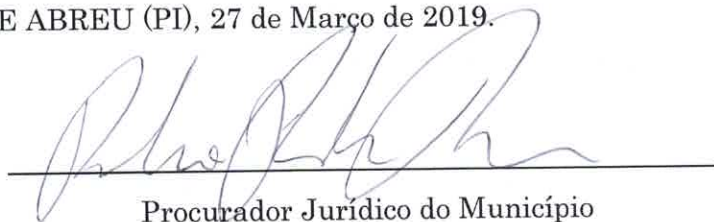 E ABREU (PI), 27 de Março de 2019.
Procurador Jurídico do Município